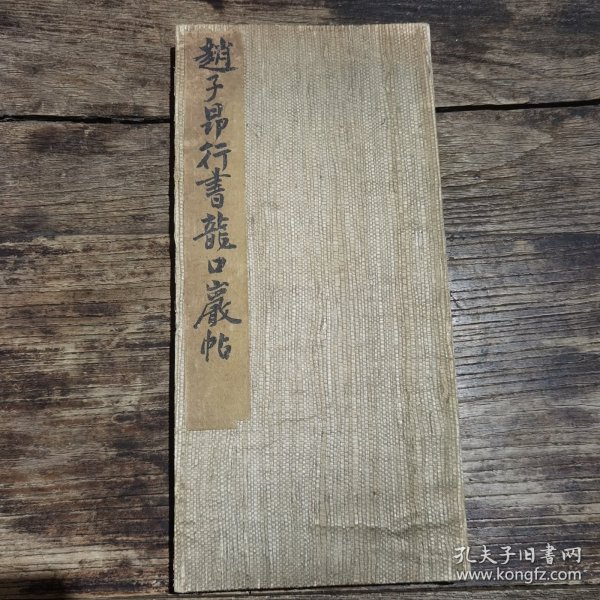 趙子昂行書龍口巖帖
孔夫子旧書网
www.kongfz.com